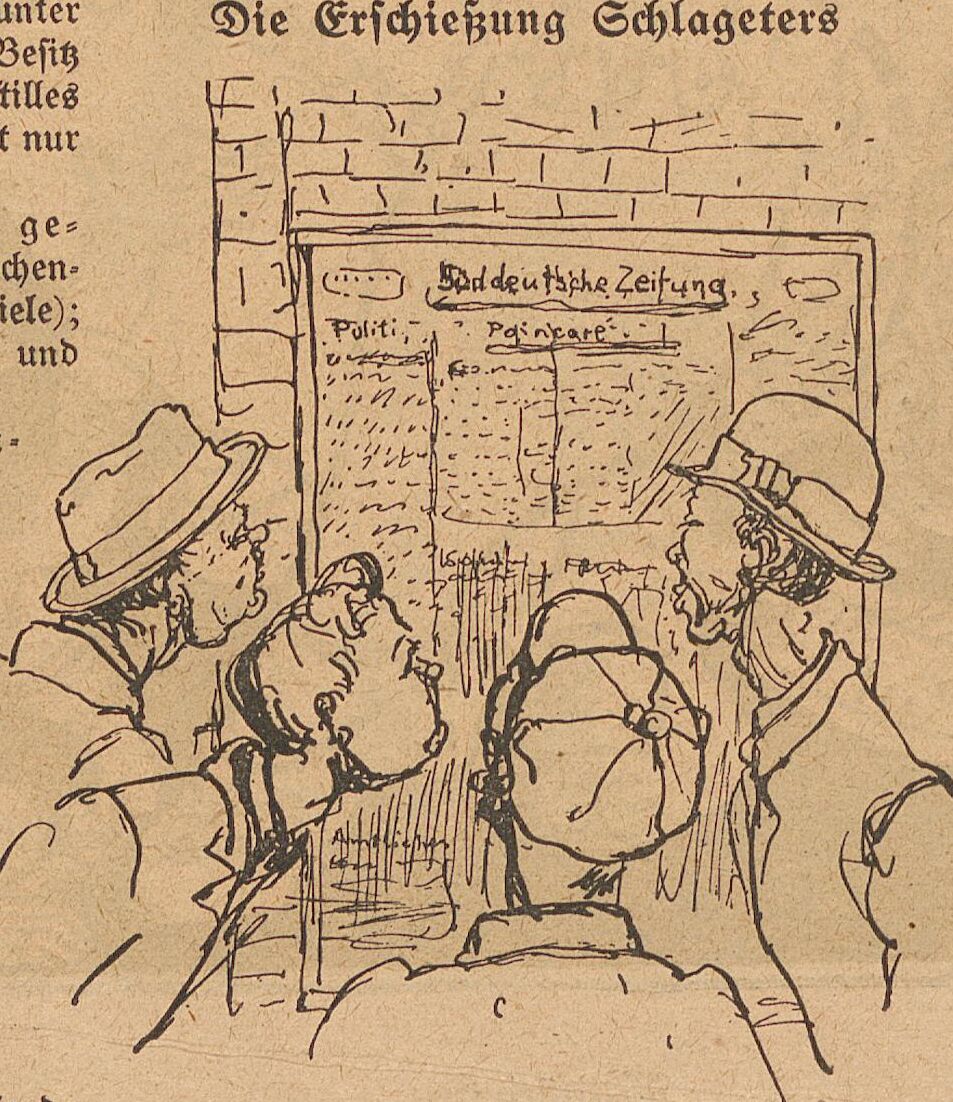 unter
Besitz
stilles
t nur
ge-
chen-
iele);
und
Die Erschießung Schlageters
Süddeutsche Zeitung
Politi
Poincaré
Amtliches